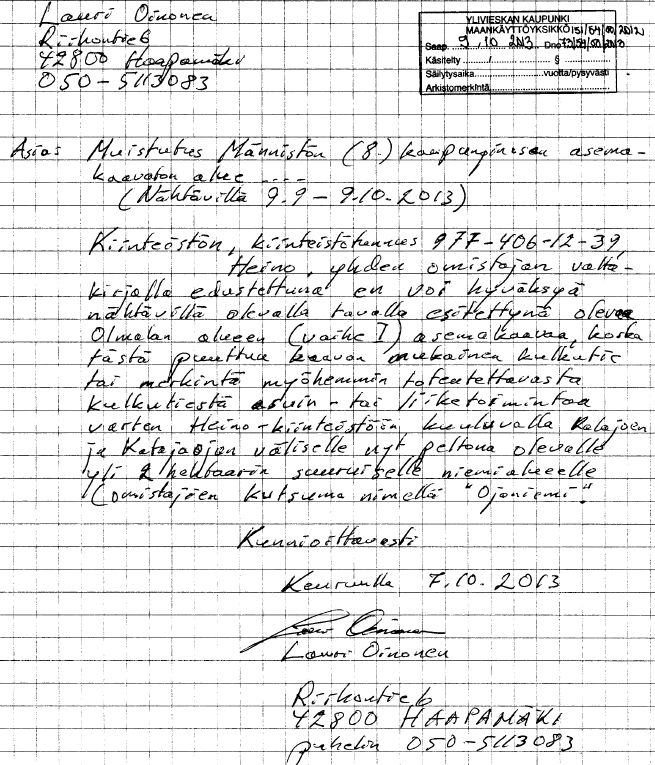 Lauri Oinonen
Riihontie 6
42800 Haapamäki
050-5113083
YLIVIESKAN KAUPUNKI
MAANKÄYTTÖYKSIKKÖ 151/64/00/2012
Saap. 9 . 10 2013 Dno
Käsitelty ........./......... §
Säilytysaika ......... vuotta/pysyvästi
Arkistomerkintä
Asia: Muistutus Männistön (8.) kaupunginosan asema-
kaavaton alue ....
(Nähtävillä 9.9 - 9.10.2013)
Kiinteistön, kiinteistötunnus 977-406-12-39,
Heino, yhden omistajan valta-
kirjalla edustettuna en voi hyväksyä
nähtävillä olevalla tavalla esitettynä olevaa
Olmalan alueen (vaihe I) asemakaavaa, koska
tästä puuttuu kaavan mukainen kulkutie
tai merkintä myöhemmin toteutettavasta
kulkutiestä asuin- tai liiketoimintaa
varten Heino-kiinteistöön kuuluvalla Kalajoen
ja Katajaojan väliselle nyt peltona olevalle
yli 2 hehtaarin suuruiselle niemialueelle
(omistajien kutsuma nimellä "Ojaniemi".
Kunnioittavasti
Keuruulla 7.10.2013
Lauri Oinonen
Lauri Oinonen
Riihontie 6
42800 HAAPAMÄKI
puhelin 050-5113083